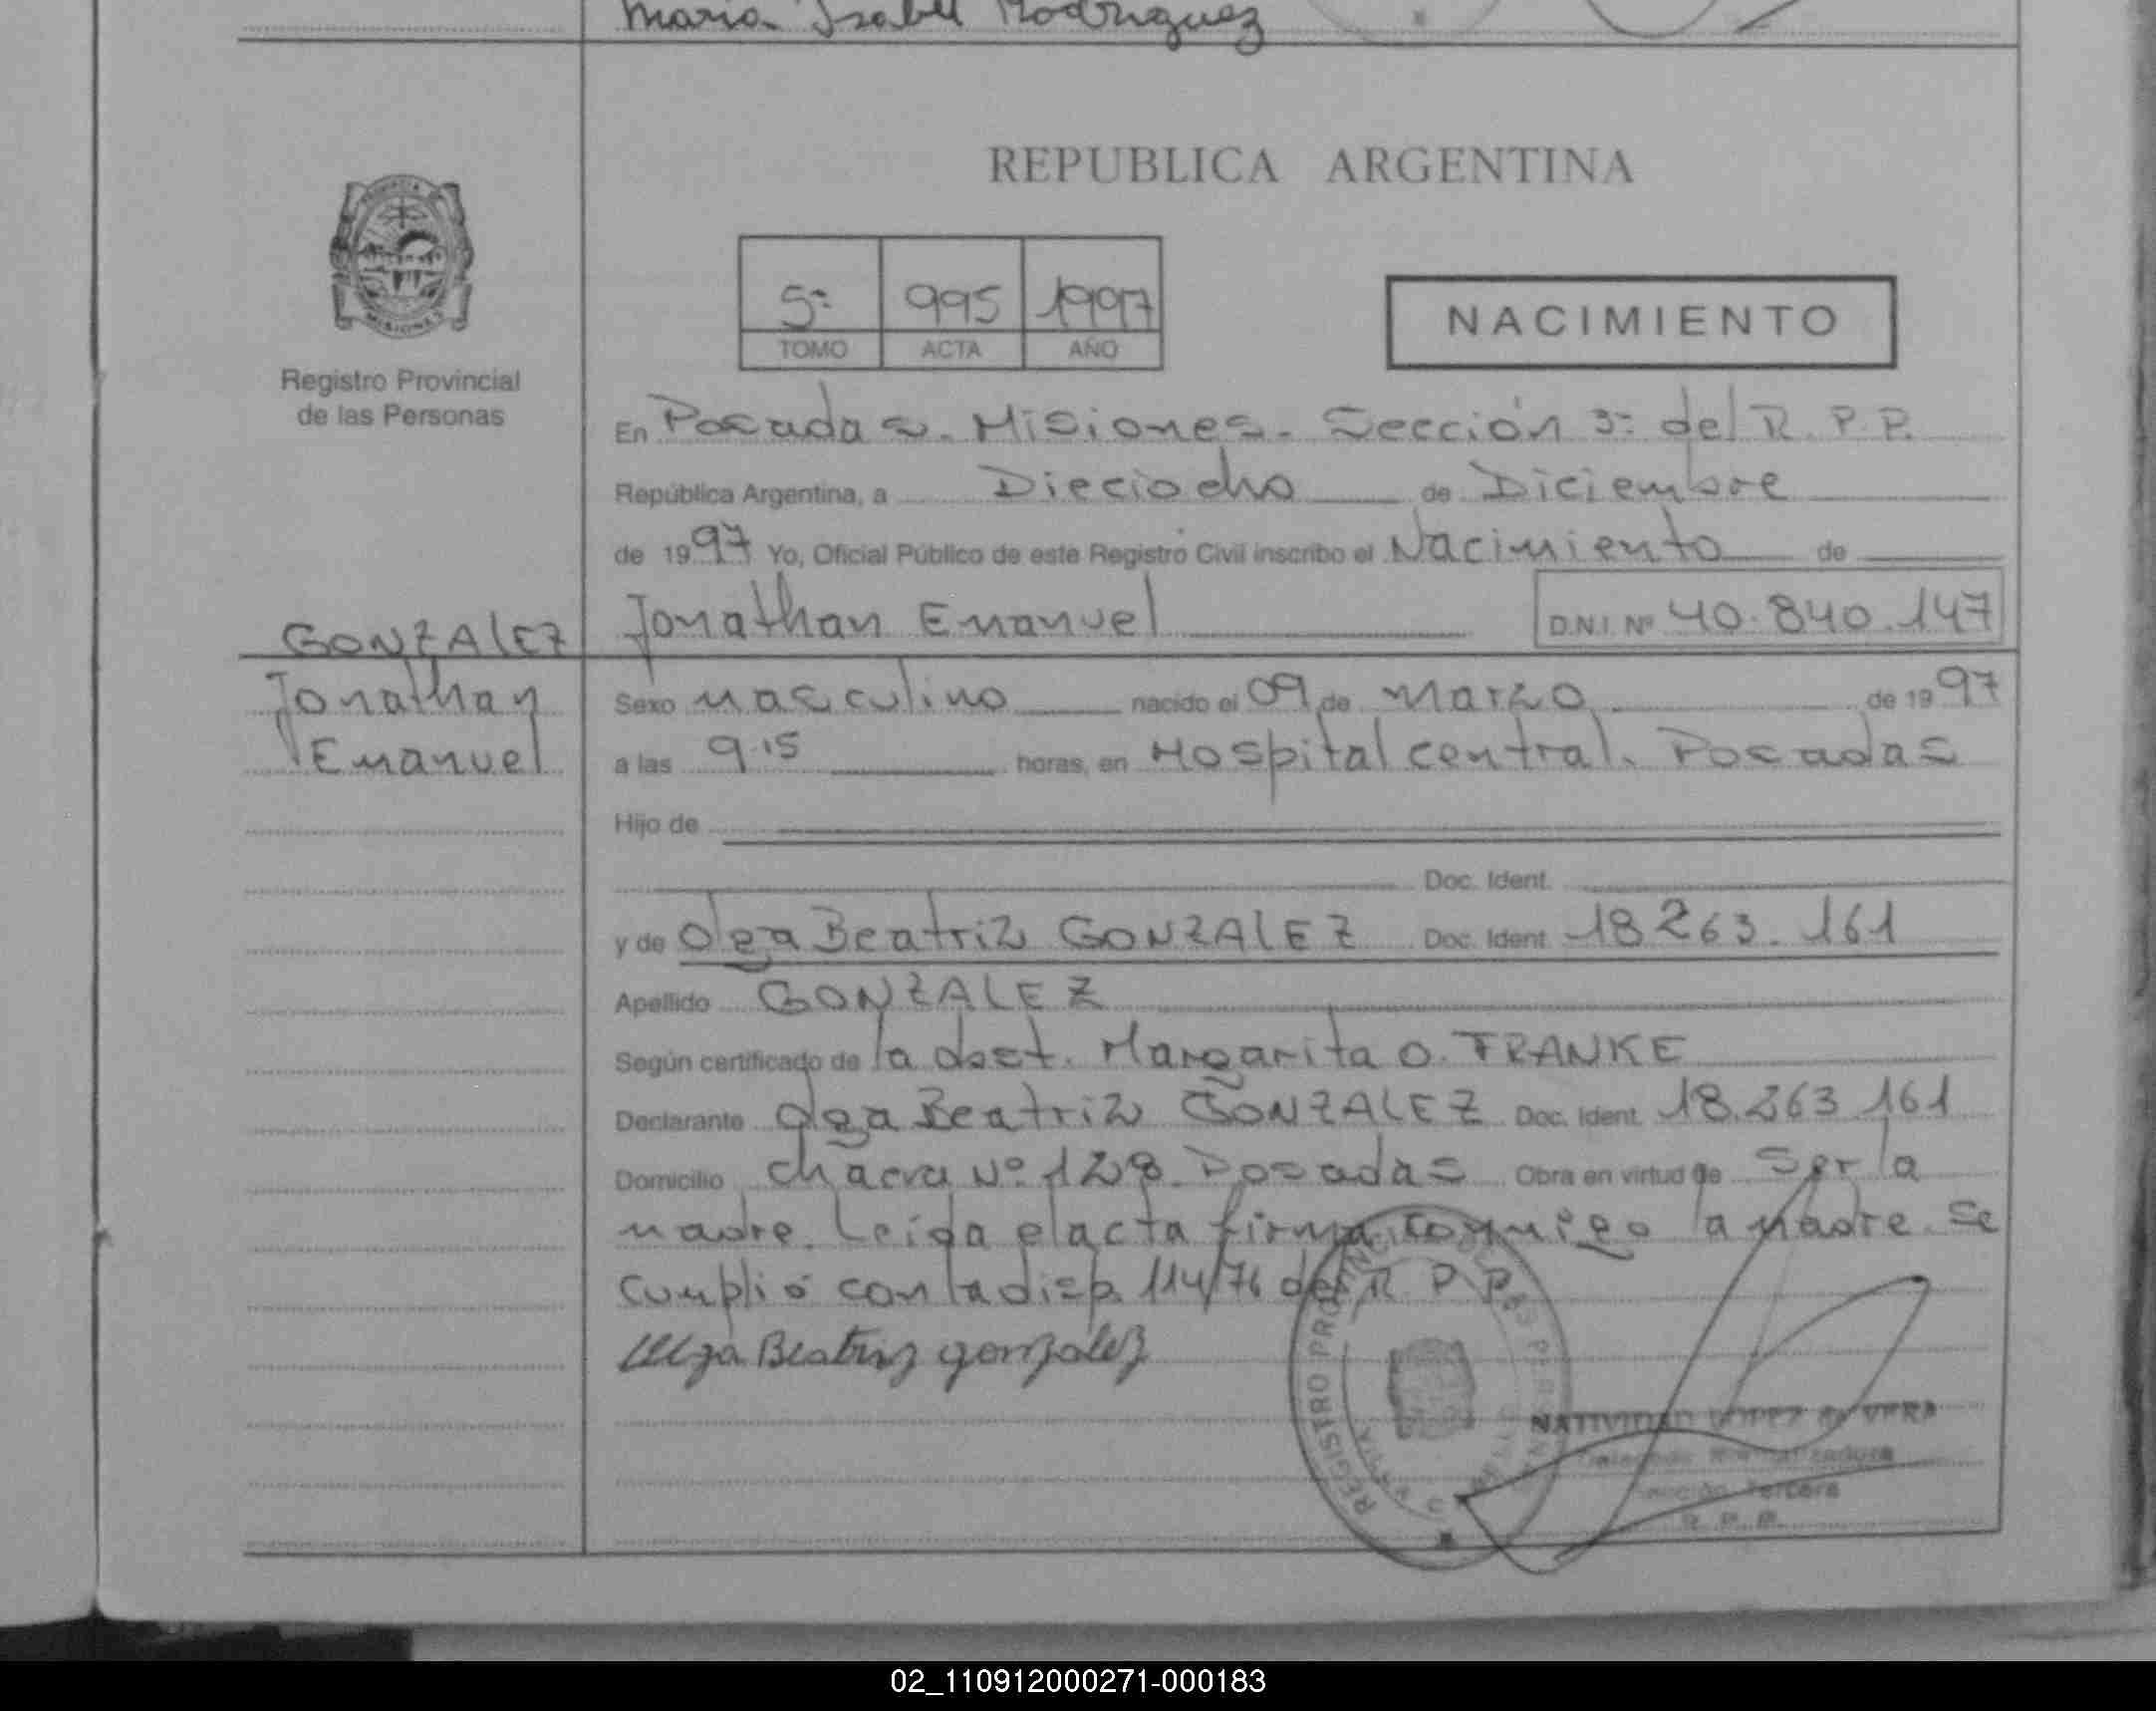 Maria Isabel Rodriguez
REPUBLICA ARGENTINA
PROVINCIA
MISIONES
Registro Provincial
de las Personas
5ª 995 1997
TOMO ACTA AÑO
NACIMIENTO
En Posadas. Misiones. Sección 3ª del R. P. P.
República Argentina, a Dieciocho de Diciembre
de 1997 Yo, Oficial Público de este Registro Civil inscribo el Nacimiento de
GONZALEZ Jonathan Emanuel D.N.I. Nº 40.840.147
Jonathan Sexo masculino nacido el 09 de Marzo de 1997
Emanuel a las 9.15 horas, en Hospital central. Posadas
Hijo de
Doc. Ident.
y de Olga Beatriz GONZALEZ Doc. Ident. 18263.161
Apellido GONZALEZ
Según certificado de la obst. Margarita O. FRANKE
Declarante Olga Beatriz GONZALEZ Doc. Ident. 18.263.161
Domicilio chacra Nº 128. Posadas Obra en virtud de Ser la
madre. Leida el acta firma conmigo la madre. Se
cumplió con la disp. 114/76 del R. P. P.
Olga Beatriz gonzalez
REGISTRO PROVINCIAL DE LAS PERSONAS
NATIVIDAD LOPEZ de VERA
Sección Tercera
R. P. P.
02_110912000271-000183